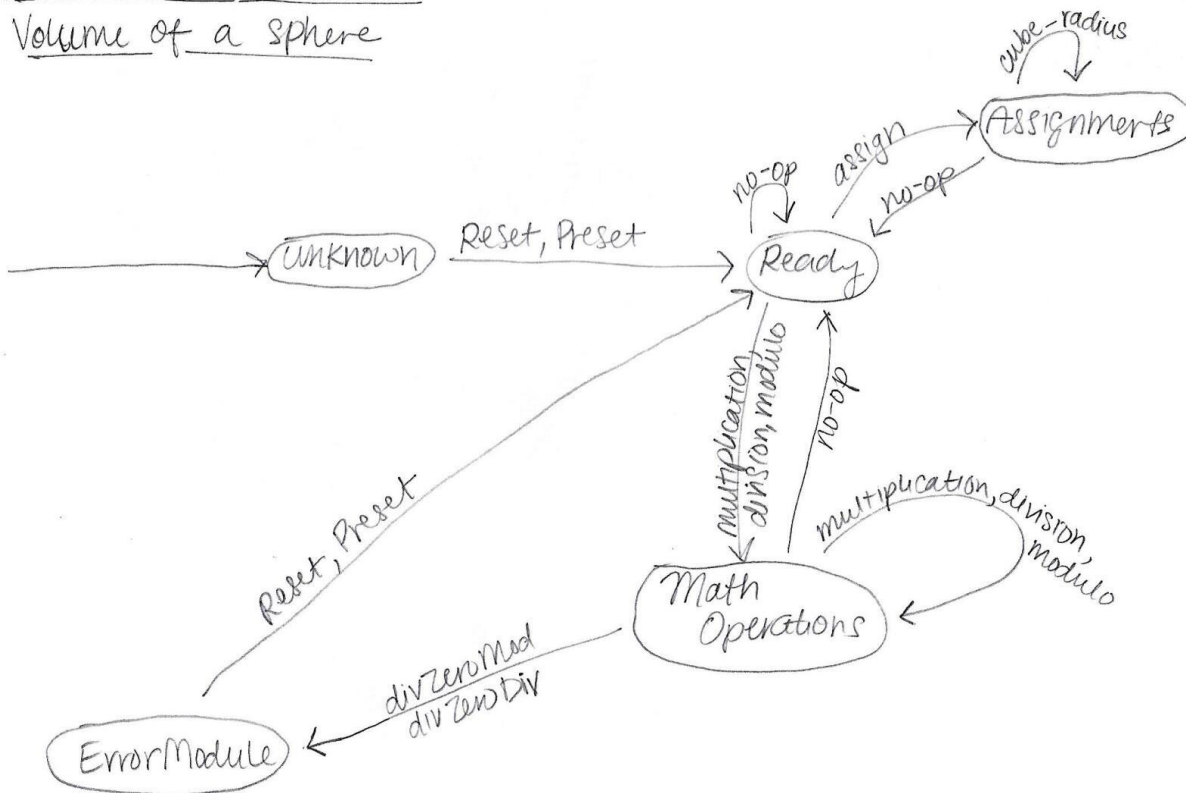 Volume of a sphere
cube-radius
Assignments
assign
no-op
no-op
Unknown
Reset, Preset
Ready
multiplication,
division, modulo
no-op
multiplication, division,
modulo
Math
Operations
Reset, Preset
divZeroMod
divZeroDiv
ErrorModule